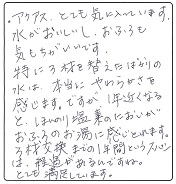 ・アクアス、とても気に入っています。
水がおいしいし、おふろも
気もちがいいです。
特にろ材を替えたばかりの
水は、本当にやわらかさを
感じます。ですが1年近くなる
と、ほんのり塩素のにおいが
おふろのお湯に感じとれます。
ろ材交換までの1年間というスパン
は、妥当があるんですね。
とても満足しています。